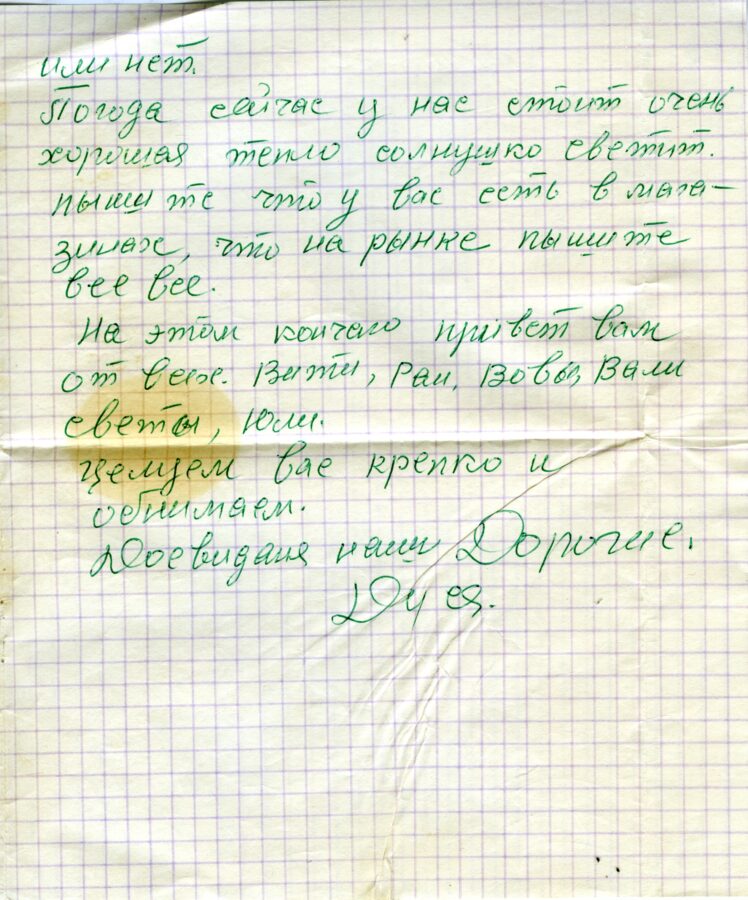 или нет.
Погода сейчас у нас стоит очень
хорошая тепло солнушко светит.
пышите что у вас есть в мага-
зинах, что на рынке пышите
все все.
На этом кончаю привет вам
от всех. Вити, Раи, Вовы, Вали
светы, Юли.
целуем вас крепко и
обнимаем.
Досвиданя наши Дорогие.
Дуся.